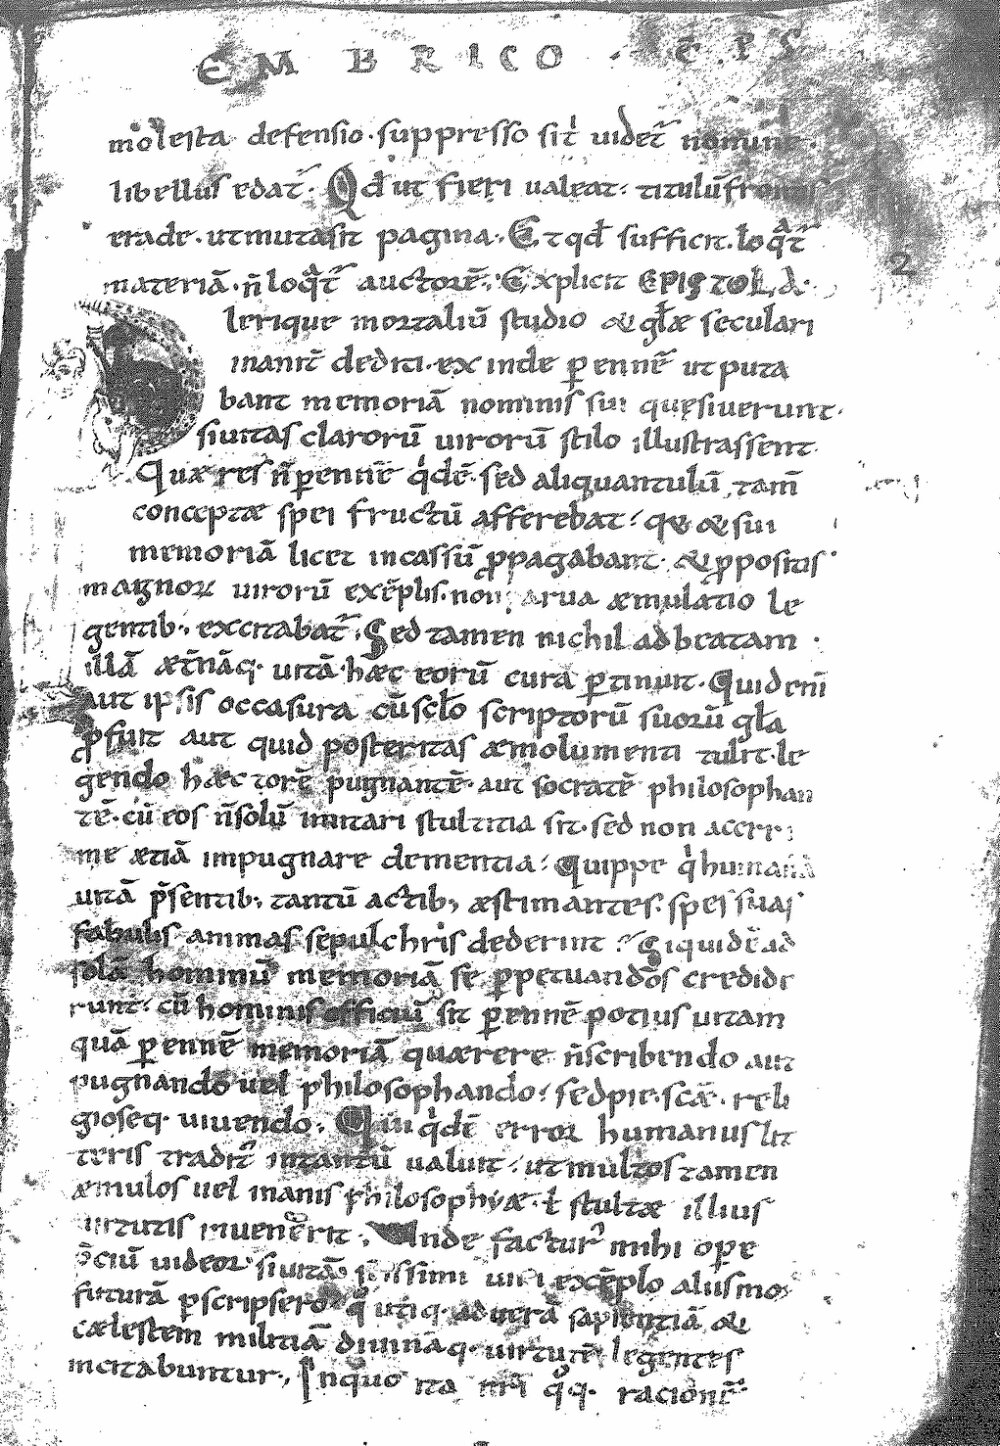 EMBRICO · EPS
molesta defensio · suppresso sit̓ uidet̃ nomine ·
libellus edat̃ · Qd̃ ut fieri ualeat : titulũ frontis
erade · ut muta sit pagina · Et qd̃ sufficit · loqt̃
materiã · ñ loqt̃ auctorẽ · Explicit EPISTOLA ·
lerique mortaliũ studio & gl̃æ seculari
inanit̃ dediti · ex inde pennẽ ut puta
bant memoriã nominis sui quęsiuerunt ·
siuitas clarorũ uirorũ stilo illustrassent ·
Quæ res ñ pennẽ qdẽ · sed aliquantulũ tam̃
conceptæ spei fructũ afferebat : q & & sui
memoriã licet incassũ ppagabant · & ppositis
magnoꝝ uirorũ exẽplis · non parua æmulatio le
gentib; excitabat̃ · Sed tamen nichil ad beatam
illã æt̃nãq · uitã · hæc eorũ cura ptinuit · Quid eni̅
aut ipsis occasura cũ scl̃o scriptorũ suorũ gl̃a
pfuit aut quid posteritas æmolumenti tulit · le
gendo hæctorẽ pugnantẽ · aut socratẽ philosophan
tẽ · cũ eos ñ solũ imitari stultitia sit · sed non acerri
me ætiã impugnare dementia : Quippe q̓ humanã
uitã p̃sentib; tantũ actib; æstimantes · spes suas
fabulis animas sepulchris dederint : Siquidẽ ad
solã hominũ memoriã se ppetuandos credide
runt : cũ hominis officiũ sit pennẽ potius uitam
quã pennẽ memoriã quærere ñ scribendo aut
pugnando uel philosophando : sed pie · scæ̃ · reli
gioseq · uiuendo · Qui qdẽ error humanus lit
teris tradit̃ intantũ ualuit : ut multos tamen
æmulos uel inanis philosophyæ · ł stultæ illius
uirtutis inuenerit · Unde factur̓ mihi ope
p̃ciũ uideor · si uitã sc̃issimi uiri exẽplo aliis mox
futurã pscripsero · q̓ utiq · ad uerã sapientiã &
cælestem militiã diuinãq · uirtutẽ legentes
incitabuntur · Inquo ita n̅ri qq · racionẽ